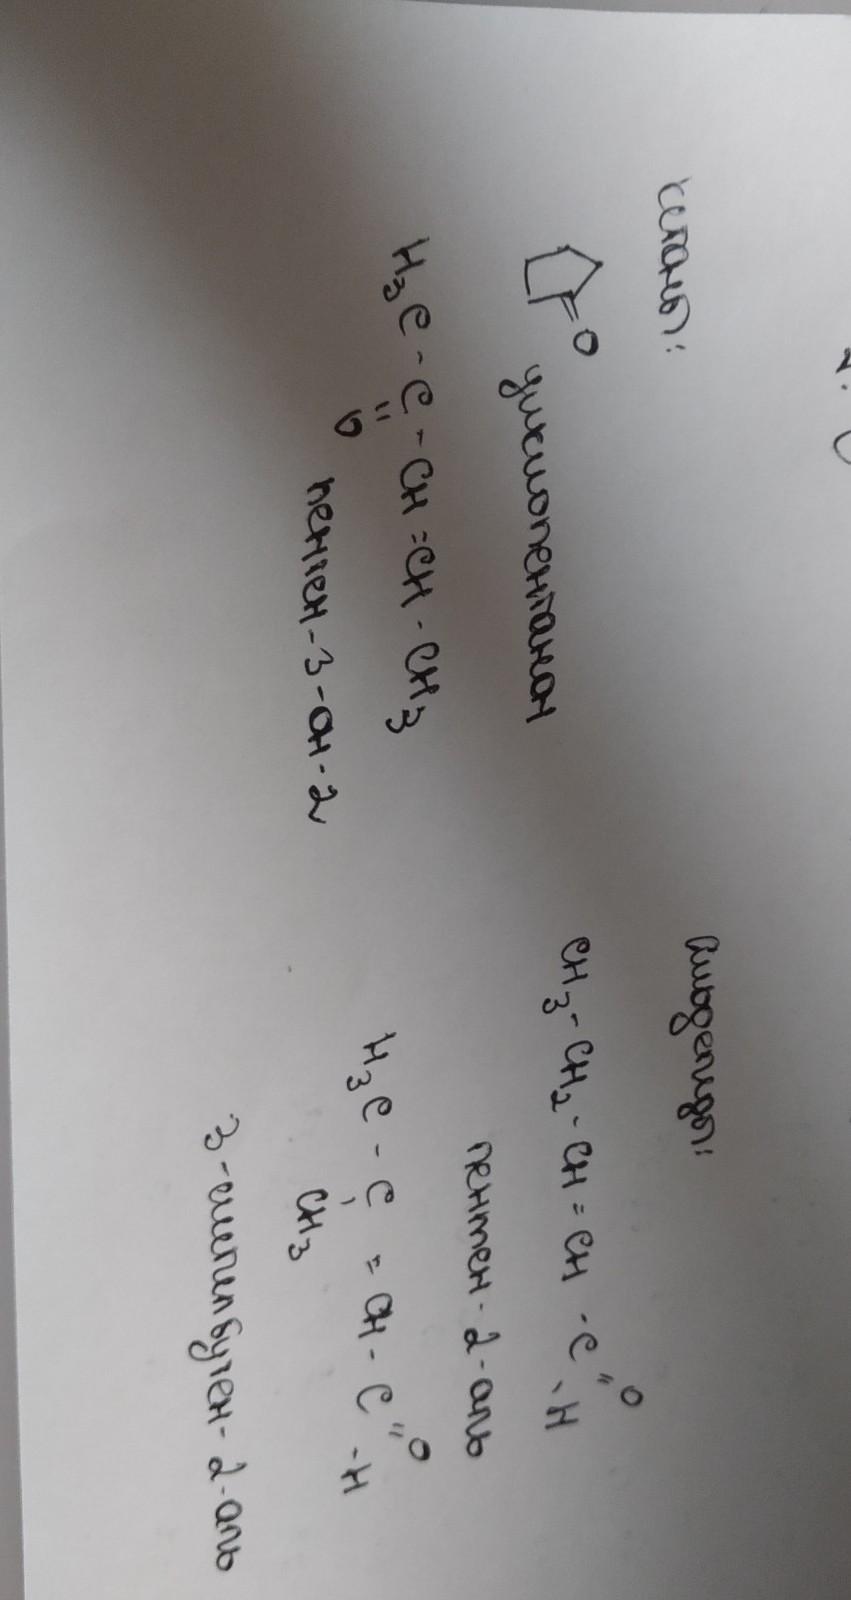 Кетоны:
=O
циклопентанон
H3C - C - CH = CH - CH3
=
O
пентен-3-он-2
Альдегиды:
CH3 - CH2 - CH = CH - C = O
- H
пентен-2-аль
H3C - C = CH - C = O
CH3 - H
3-метилбутен-2-аль